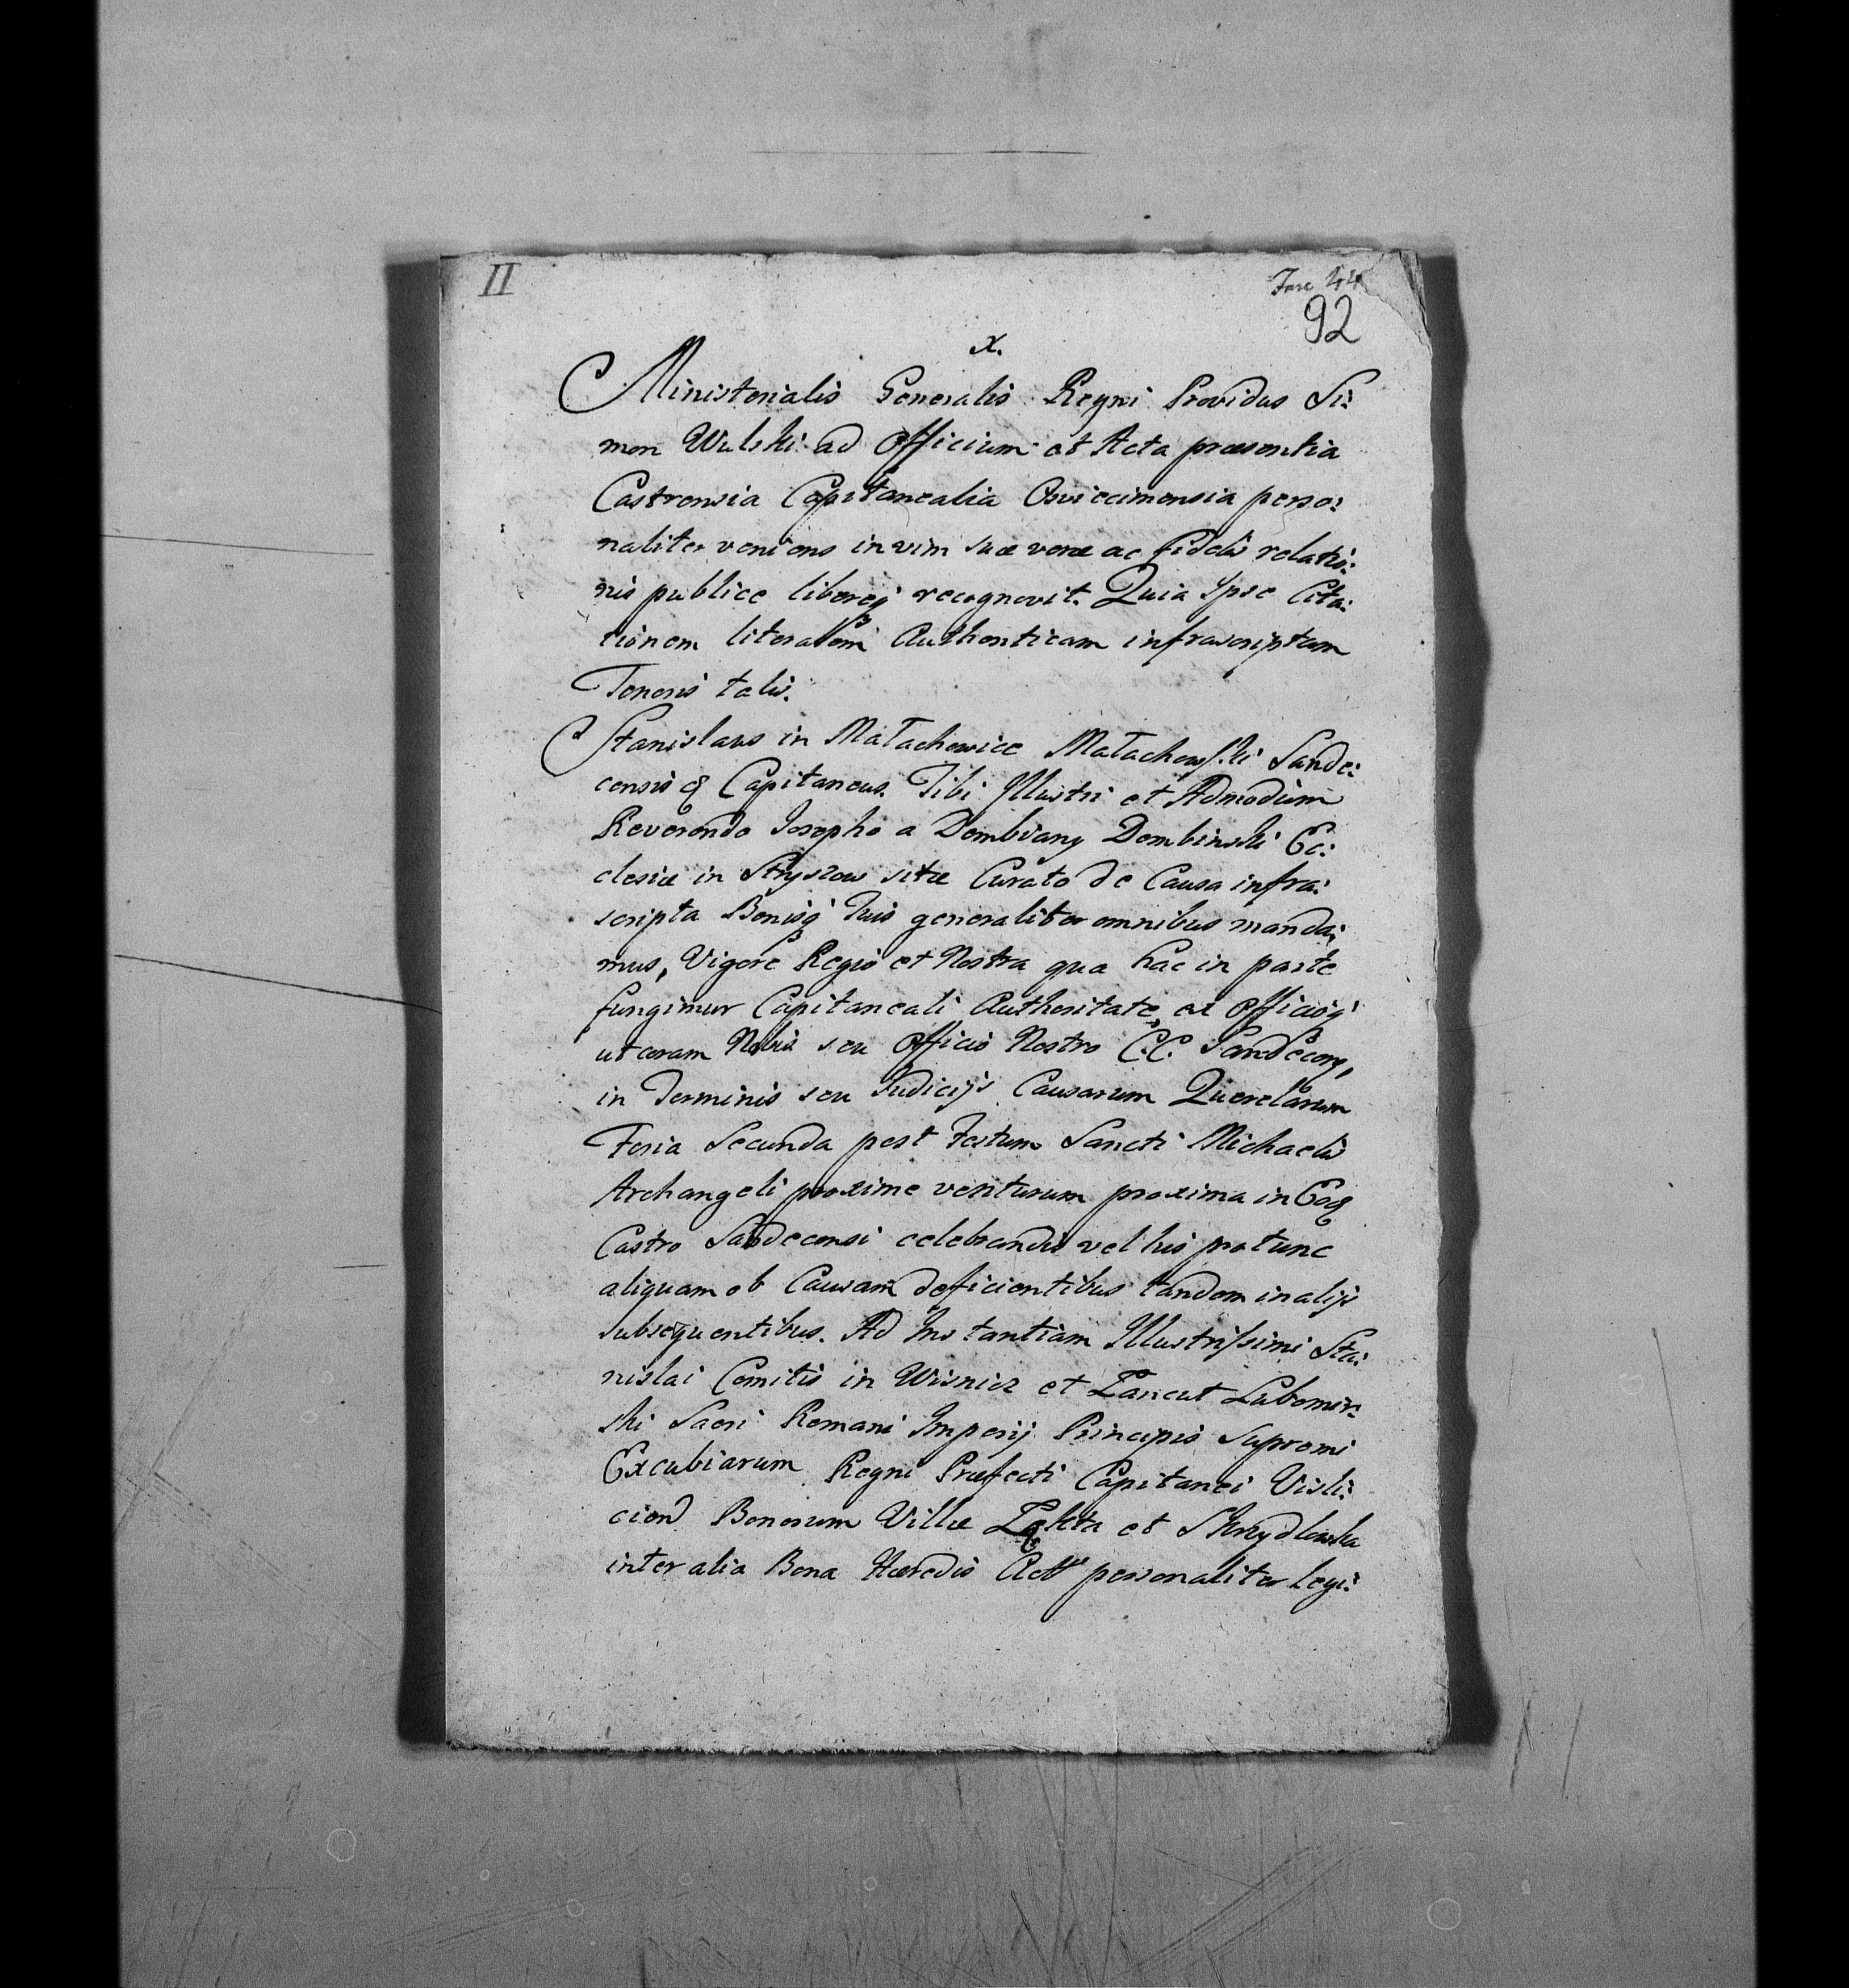 II
Fasc 44
92
x.
Ministerialis Generalis Regni Providus Si:
mon Wulski ad Officium et Acta præsentia
Castrensia Capitanealia Osviecimensia perso:
naliter veniens in vim suæ veræ ac fidelis relatio:
nis publice libereq recognovit. Quia Ipse Cita:
tionem literalem Authenticam infrascriptam
Tenoris talis.
Stanislaus in Małachowice Małachowski Sande:
censis & Capitaneus. Tibi Illustri et Admodum
Reverendo Josepho a Dembiany Dembinski Ec:
clesiæ in Stryszow sitæ Curato de Causa infra:
scripta Bonisq Tuis generaliter omnibus manda:
mus, Vigore Regio et Nostra qua hac in parte
fungimur Capitaneali Authoritate, ex officioq
ut coram Nobis seu Officio Nostro C.C. Sandecen,
in Terminis seu Judicijs Causarum Querelarum
Feria Secunda post Festum Sancti Michaelis
Archangeli proxime venturum proxima in Eoq
Castro Sandecensi celebrandis vel his pro tunc
aliquam ob Causam deficientibus tandem in alijs
subsequentibus. Ad Instantiam Illustrissimi Sta:
nislai Comitis in Wisnicz et Łancut Lubomir:
ski Sacri Romani Imperij Principis Supremi
Excubiarum Regni Præfecti Capitanei Visli:
cien Bonorum Villæ Łękta et Skrzydlowka
inter alia Bona Hæredis Act personaliter legi: